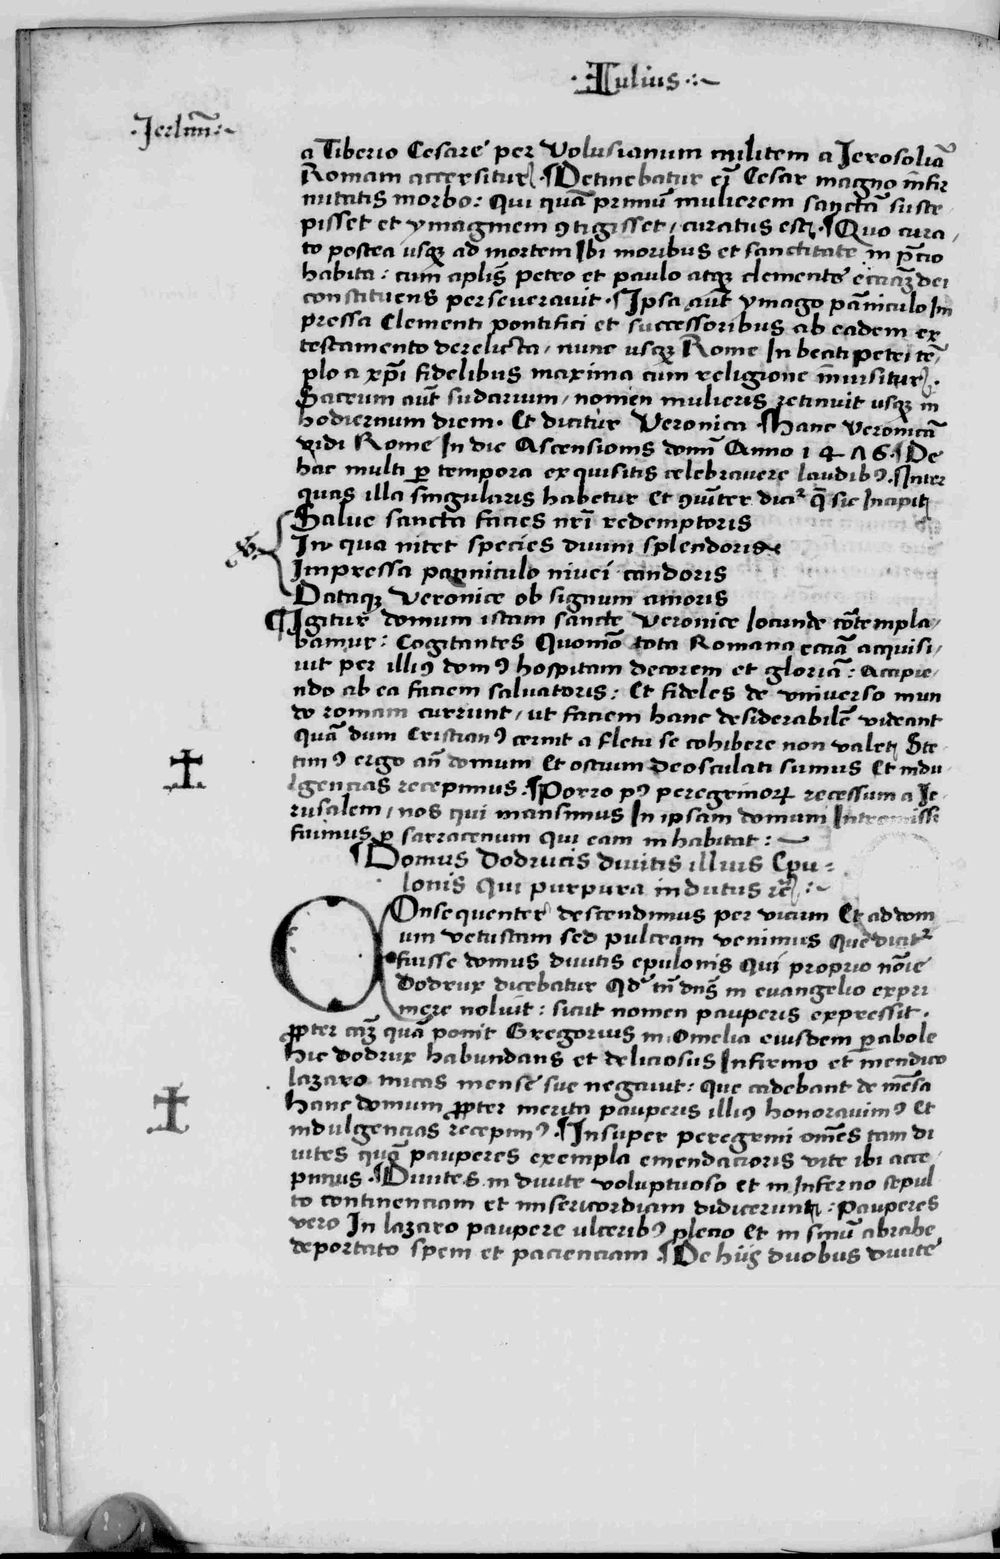 ·Iulius·:~
·Jerlm̄:~
a Tiberio Cesare per Volusianum militem a Jerosolīa
Romam accersitur. ¶Detinebatur eī Cesar magno infir
mitatis morbo: Qui quā primū mulierem sanctā susce
pisset et ymaginem ꝯtigisset, curatus est. ¶Quo cura,
to postea usqꝫ ad mortem Ibi moribus et sanctitate in p̄cio
habita: cum aplīs petro et paulo atqꝫ clemente ecciāꝫ dei
constituens perseveravit. ¶Ipsa aūt ymago pāniculo Im
pressa Clementi pontifici et successoribus ab eadem ex
testamento derelicta, nunc usqꝫ Rome In beati petri tē,
plo a xp̄i fidelibus maxima cum religione īnvisitur.
Sacrum aūt sudarium, nomen mulieris retinuit usqꝫ in
hodiernum diem. Et dicitur Veronica. ¶Hanc Veronicā
vidi Rome In die Ascensionis domī Anno 1476. ¶De
hac multi ꝑ tempora exquisitis celebravere laudibꝰ. ¶Inter
quas illa singularis habetur Et ꝯūiter dicir q̄ sic Incipit
Salve sancta facies nrī redemptoris
In qua nitet species divini splendoris
Impressa panniculo nivei candoris
Dataqꝫ Veronice ob signum amoris
¶Igitur domum istam sancte Veronice Iocunde cōtempla,
bamur: Cogitantes Quomō tota Romana ecciā acquisi,
vit per illiꝰ domꝰ hospitam decorem et gloriā: Accipie,
ndo ab ea faciem salvatoris: Et fideles de universo mun
do romam currunt, ut faciem hanc desiderabilē videant
Quā dum Cristianꝰ cernit a fletu se cohibere non valet. Ste
timꝰ ergo an̄ domum Et ostium deosculati sumus Et indu
lgencias recepimus. ¶Porro pꝰ peregrinoꝝ recessum a Je
rusalem, nos qui mansimus In ipsam domum Intromissi
fuimus ꝑ sarracenum qui eam inhabitat:
¶Domus Dodrucis divitis illius Epu-
lonis Qui purpura indutus
COnsequenter descendimus per vicum Et ad dom
um vetustam sed pulcram venimus Que dicit
fuisse domus divitis epulonis Qui proprio nōīe
Dodrux dicebatur Qd̄ tn̄ dn̄s in evangelio expri
mere noluit: sicut nomen pauperis expressit.
ꝓpter cāꝫ quā ponit Gregorius in Omelia eiusdem ꝑabole
hic dodrux habundans et deliciosus Infirmo et mendico
lazaro micas mense sue negavit: Que cadebant de mēsa
hanc domum ꝓpter merita pauperis illiꝰ honoravimꝰ Et
indulgencias recepimꝰ. ¶Insuper peregrini om̄es tam di
vites quā pauperes exempla emendacioris vite ibi acce,
pimus. ¶Divites in divite voluptuoso et in Inferno sepul
to continenciam et misericordiam didicerunt: Pauperes
vero In lazaro paupere ulceribꝰ pleno Et in sinū abrahe
deportato spem et pacienciam. ¶De hiis duobus divite